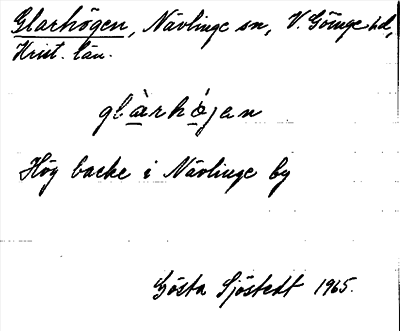 Glarhögen, Nävlinge sn, V. Göinge hd,
Krist. län.
glàrhǿjan
Hög backe i Nävlinge by
Gösta Sjöstedt 1965.